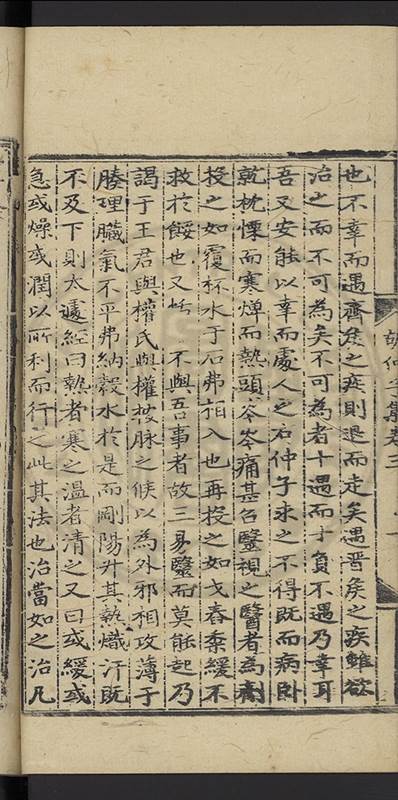 也不幸而遇齊矦之疾則退而走矣遇晋矦之疾雖欲
治之而不可為矣不可為者十遇而十負不遇乃幸耳
吾又安能以幸而處人之右仲子求之不得既而病卧
就枕慄而寒燀而熱頭岑岑痛甚召毉視之醫者為劑
投之如覆杯水于石弗相入也再投之如戈舂黍緩不
救於餒也又 不與吾事者故三易毉而莫能起乃
謁于王君與權氏與權按脉之候以為外邪相攻薄于
腠理臟氣不平弗納穀水於是而剛陽升其熱熾汗既
不及下則太遽經曰熱者寒之温者清之又曰或緩或
急或燥或潤以所利而行之此其法也治當如之治凡
胡仲子集卷三